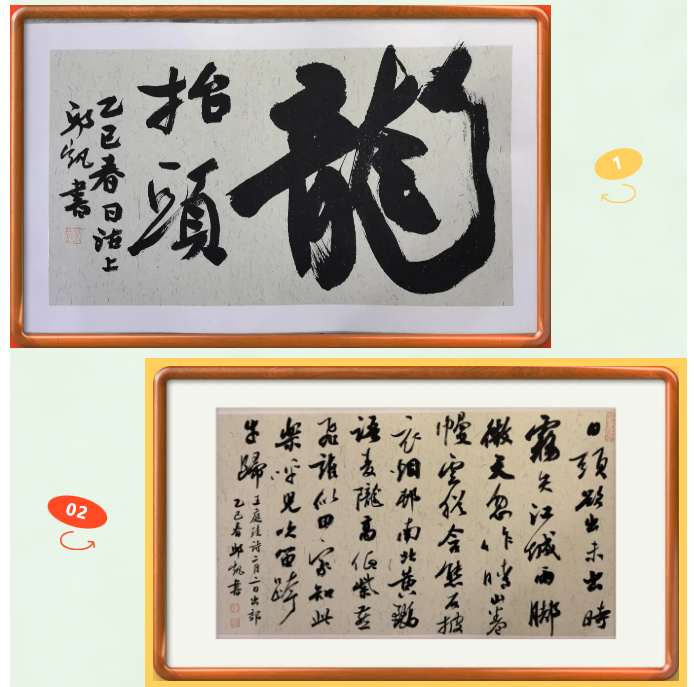 龍
抬頭
乙巳春日沽上
書
1
02
日頭欲出未出時
霧失江城雨腳
微天忽作晴山卷
幔雲猶含態石披
衣烟邨南北黃鸝
語麥隴高低紫燕
飛誰似田家知此
樂呼兒吹笛跨
牛歸
王庭珪詩二月二日出郊
乙巳春 書